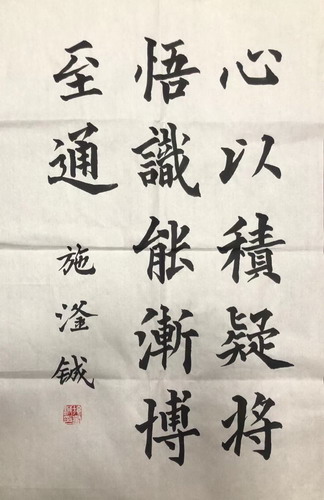 心以積疑將
悟識能漸博
至通
施滢鋮